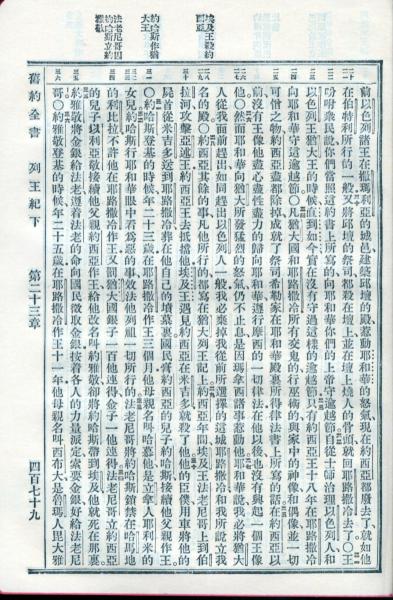 埃及王殺約
西亞
約哈斯作猶
大王
法老尼哥囚
約哈斯立約
雅敬
前以色列諸王在撒瑪利亞的城邑建築邱壇的殿惹動耶和華的怒氣現在約西亞都廢去了就如他
在伯特利所行的一般又將邱壇的祭司都殺在壇上並在壇上燒人的骨頭就回耶路撒冷去了○王
吩咐衆民說你們當照這約書上所寫的向耶和華你們的上帝守逾越節自從士師治理以色列人和
以色列王猶大王的時候直到如今實在沒有守過這樣的逾越節只有約西亞王十八年在耶路撒冷
向耶和華守這逾越節○凡猶大國和耶路撒冷所有交鬼的行巫術的與家中的神像和偶像並一切
可憎之物約西亞盡都除掉成就了祭司希勒家在耶和華殿裏所得律法書上所寫的話在約西亞以
前沒有王像他盡心盡性盡力的歸向耶和華遵行摩西的一切律法在他以後也沒有興起一個王像
他○然而耶和華向猶大所發猛烈的怒氣仍不止息是因瑪拿西諸事惹動他耶和華說我必將猶大
人從我面前趕出如同趕出以色列人一般我必棄掉我從前所選擇的這城耶路撒冷和我所說立我
名的殿○約西亞其餘的事凡他所行的都寫在猶大列王記上約西亞年間埃及王法老尼哥上到伯
拉河攻擊亞述王約西亞王去抵擋他埃及王遇見約西亞在米吉多就殺了他他的臣僕用車將他的
屍首從米吉多送到耶路撒冷葬在他自己的墳墓裏國民膏約西亞的兒子約哈斯接續他父親作王
○約哈斯登基的時候年二十三歲在耶路撒冷作王三個月他母親名叫哈慕他是立拿人耶利米的
女兒約哈斯行耶和華眼中看爲惡的事效法他列祖一切所行的法老尼哥將約哈斯鎖禁在哈馬地
的利比拉不許他在耶路撒冷作王又罰猶大國銀子一百他連得金子一他連得法老尼哥立約西亞
的兒子以利亞敬接續他父親約西亞作王給他改名叫約雅敬卻將約哈斯帶到埃及他就死在那裏
約雅敬將金銀給法老遵着法老的命向國民徵取金銀按着各人的力量派定索要金銀好給法老尼
哥○約雅敬登基的時候年二十五歲在耶路撒冷作王十一年他母親名叫西布大是魯瑪人毘大雅
舊約全書 列王紀下 第二十三章 四百七十九